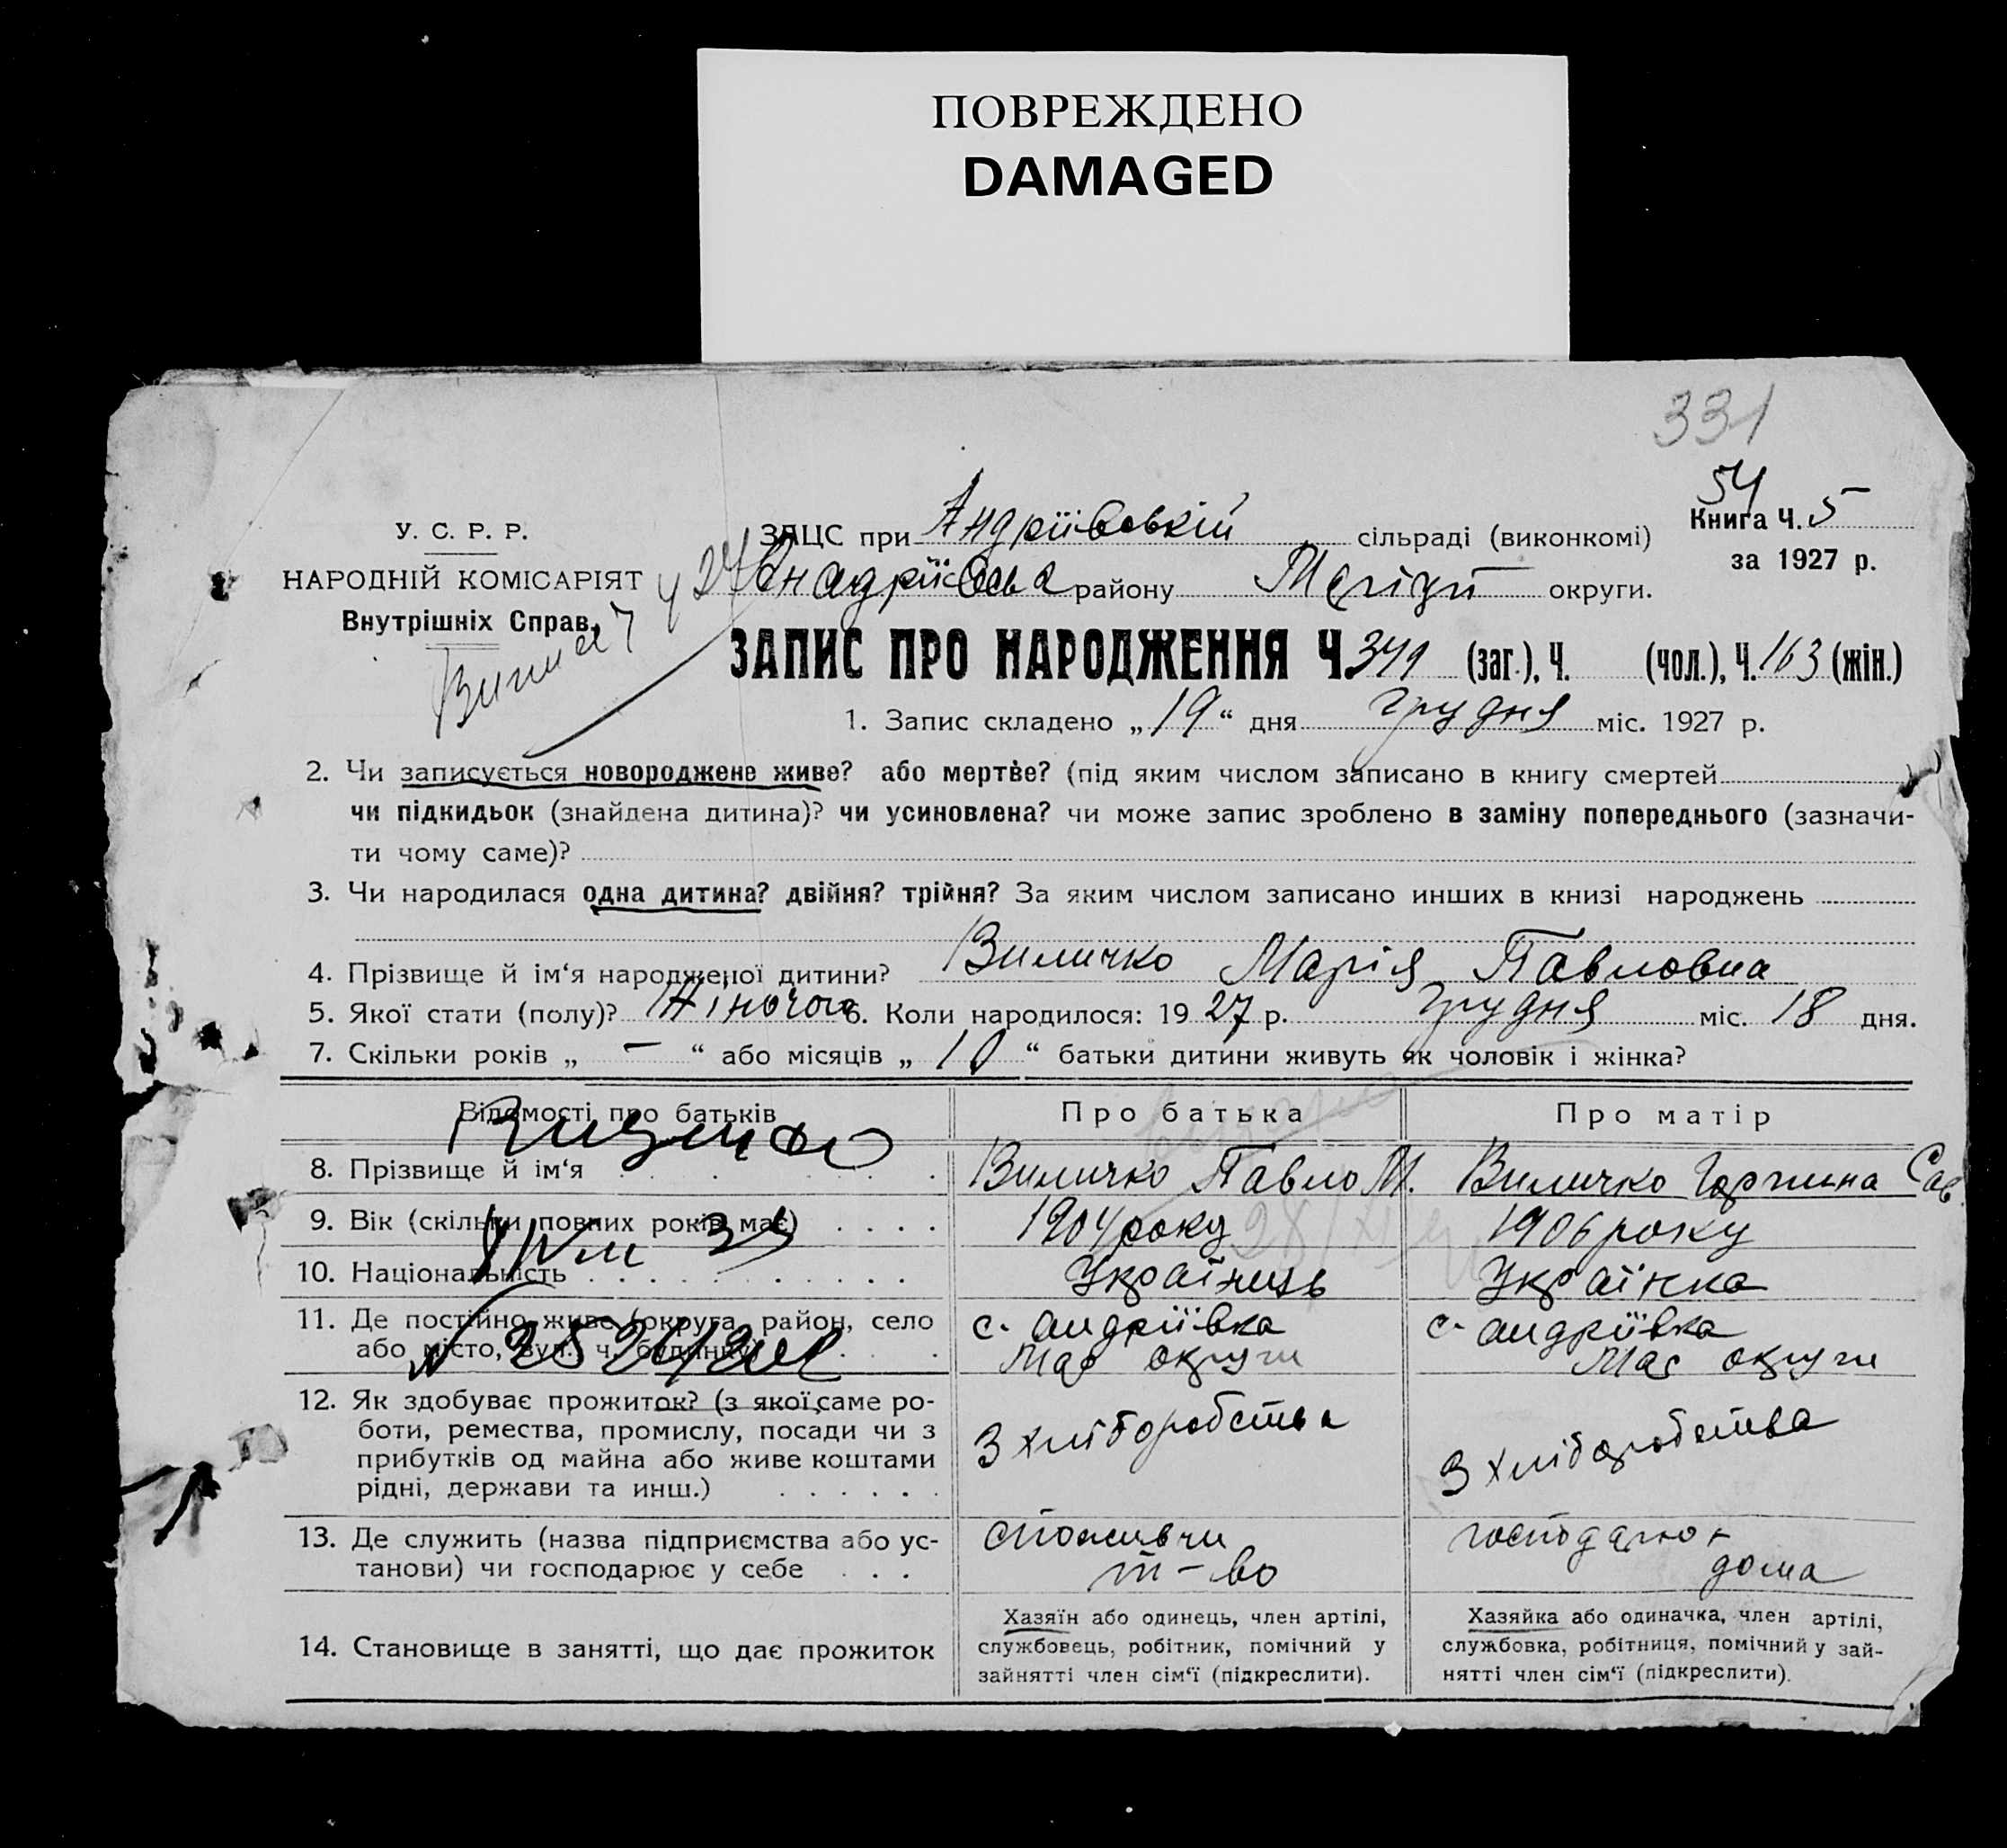 ПОВРЕЖДЕНО
DAMAGED
331
54
У. С. Р. Р.
НАРОДНІЙ КОМІСАРІЯТ
Внутрішніх Справ.
ЗАЦС при Андріївській сільраді (виконкомі)
Книга Ч. 5
за 1927 р.
району округи.
ЗАПИС ПРО НАРОДЖЕННЯ Ч. 341 (заг.), Ч. (чол.), Ч. 163 (жін.)
1. Запис складено „19“ дня грудня міс. 1927 р.
2. Чи записується новороджене живе? або мертве? (під яким числом записано в книгу смертей )
чи підкидьок (знайдена дитина)? чи усиновлена? чи може запис зроблено в заміну попереднього (зазначи-
ти чому саме)?
3. Чи народилася одна дитина? двійня? трійня? За яким числом записано инших в книзі народжень
4. Прізвище й ім‘я народженої дитини? Виличко Марія Павловна
5. Якої стати (полу)? Жіночої 6. Коли народилося: 1927 р. грудня міс. 18 дня.
7. Скільки років „ — “ або місяців „ 10 “ батьки дитини живуть як чоловік і жінка?
Відомості про батьків
Про батька
Про матір
8. Прізвище й ім‘я
Виличко Павло М.
Виличко Сав.
9. Вік (скільки повних років має)
1904 року
1906 року
10. Національність
Українець
Українка
11. Де постійно живе (округа, район, село
або місто, вул., ч. будинку)
с. Андріївка
Мар округи
с. Андріївка
Мар округи
12. Як здобуває прожиток? (з якої саме ро-
боти, ремества, промислу, посади чи з
прибутків од майна або живе коштами
рідні, держави та инш.)
З хліборобства
З хліборобства
13. Де служить (назва підприємства або ус-
танови) чи господарює у себе
споживчи
т-во
дома
14. Становище в занятті, що дає прожиток
Хазяїн або одинець, член артілі,
службовець, робітник, помічний у
зайнятті член сім‘ї (підкреслити).
Хазяйка або одиначка, член артілі,
службовка, робітниця, помічний у зай-
нятті член сім‘ї (підкреслити).